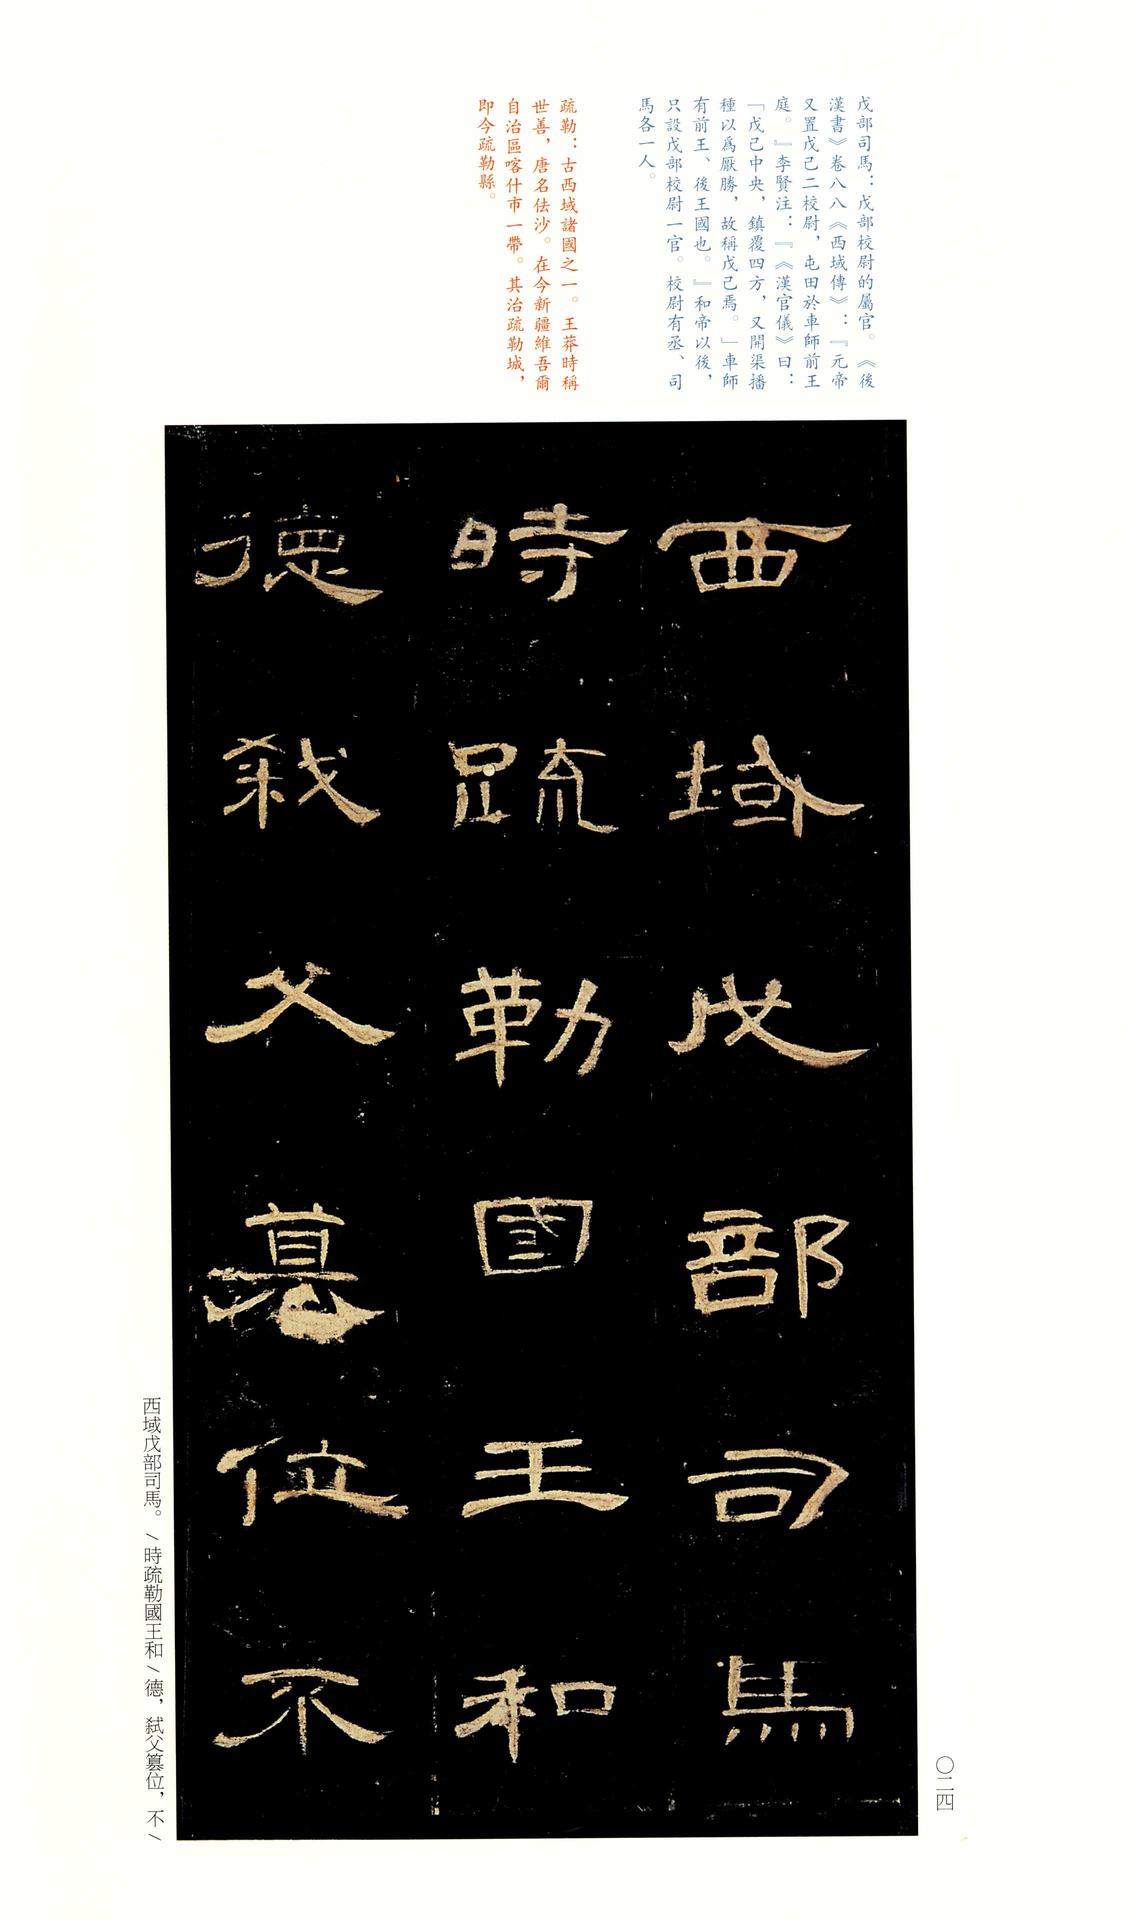 戊部司馬：戊部校尉的屬官。《後
漢書》卷八八《西域傳》：『元帝
又置戊己二校尉，屯田於車師前王
庭。』李賢注：『《漢官儀》曰：
「戊己中央，鎮覆四方，又開渠播
種以爲厭勝，故稱戊己焉。」車師
有前王、後王國也。』和帝以後，
只設戊部校尉一官。校尉有丞、司
馬各一人。
疏勒：古西域諸國之一。王莽時稱
世善，唐名佉沙。在今新疆維吾爾
自治區喀什市一帶。其治疏勒城，
即今疏勒縣。
西域戊部司馬
時疏勒國王和
德弒父篡位不
西域戊部司馬。/時疏勒國王和/德，弒父篡位，不/
〇二四